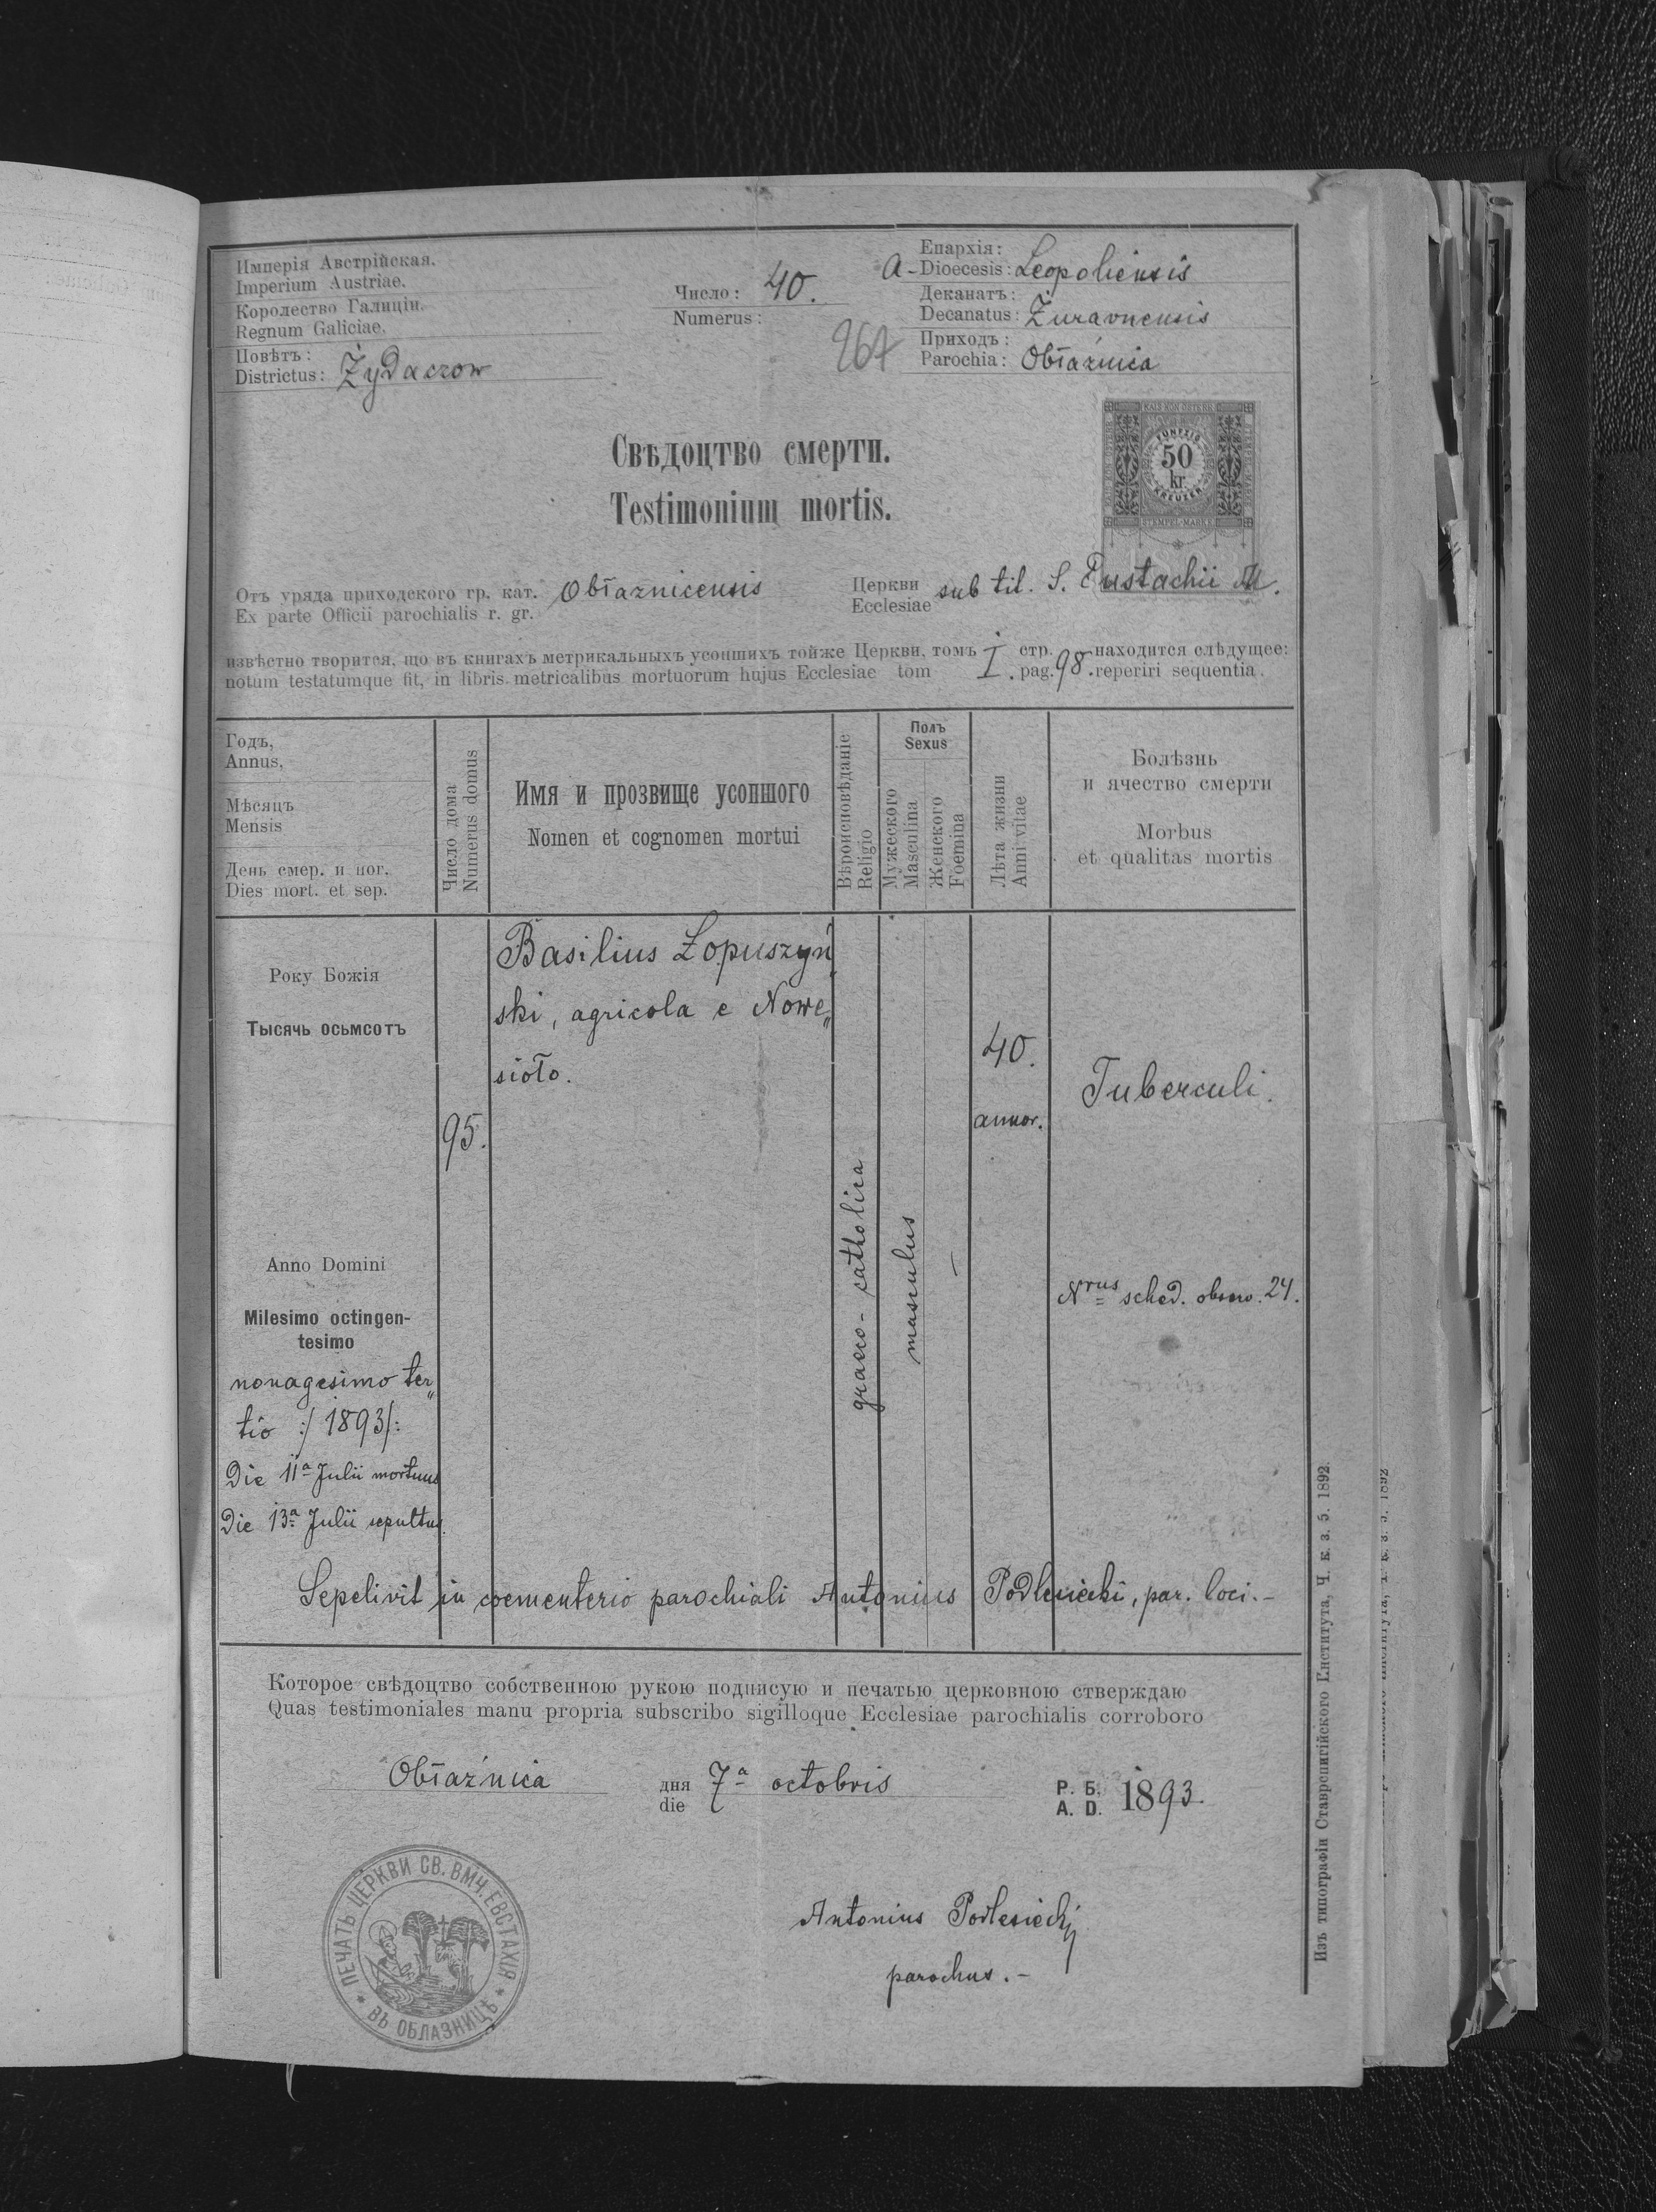 Имперія Австрійская.
Imperium Austriae.
Королество Галиціи.
Regnum Galiciae.
Повѣтъ:
Districtus: Żydaczow
Число: 40.
Numerus:
267
Епархія:
A-Dioecesis: Leopoliensis
Деканатъ:
Decanatus: Żuravnensis
Приходъ:
Parochia: Obłaźnica
KAIS. KÖN. ÖSTERR.
FÜNFZIG
50
kr.
KREUZER
STEMPEL-MARKE
Свѣдоцтво смерти.
Testimonium mortis.
Отъ уряда приходского гр. кат. Obłaznicensis Церкви sub tit. S. Eustachii M.
Ex parte Officii parochialis r. gr. Ecclesiae
извѣстно творится, що въ книгахъ метрикальныхъ усопшихъ тойже Церкви, томъ I. стр. 98. находится слѣдущее:
notum testatumque fit, in libris metricalibus mortuorum hujus Ecclesiae tom pag. reperiri sequentia.
Годъ,
Annus,
Мѣсяцъ
Mensis
День смер. и пог.
Dies mort. et sep.
Число дома
Numerus domus
Имя и прозвище усопшого
Nomen et cognomen mortui
Вѣроисповѣданіе
Religio
Полъ
Sexus
Мужеского
Masculina
Женского
Foemina
Лѣта жизни
Anni vitae
Болѣзнь
и ячество смерти
Morbus
et qualitas mortis
Року Божія
Тысячь осьмсотъ
Anno Domini
Milesimo octingen-
tesimo
nonagesimo ter„
tio :/ 1893/:
Die 11ª Julii mortuus
Die 13ª Julii sepultus.
95.
Basilius Łopuszyń„
ski, agricola e Nowe„
sioło.
graeco-catholica
masculus
—
40.
annor.
Tuberculi.
Nrus sched. observ. 24.
Sepelivit in coementerio parochiali Antonius Podlesiecki, par. loci.-
Которое свѣдоцтво собственною рукою подписую и печатью церковною стверждаю
Quas testimoniales manu propria subscribo sigilloque Ecclesiae parochialis corroboro
Obłaźnica дня 7ª octobris Р. Б. 1893.
die A. D.
Antonius Podlesiecki
parochus.-
ПЕЧАТЬ ЦЕРКВИ СВ. ВМЧ. ЕВСТАХІЯ * ВЪ ОБЛАЗНИЦѢ *
Изъ типографіи Ставропигійского Института, Ч. к. з. 5. 1892.